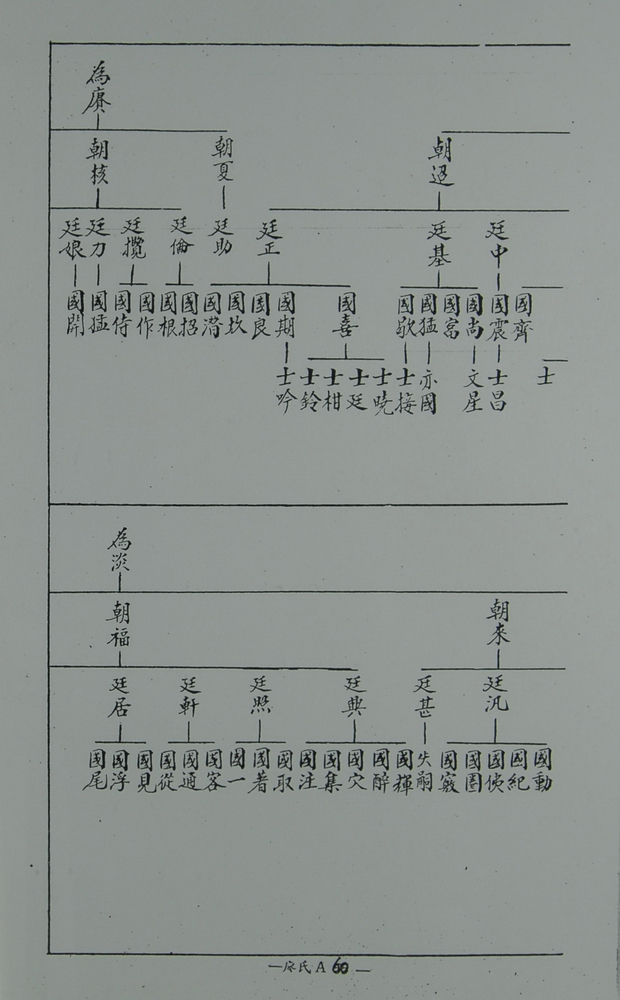 為賡
朝迢
朝夏
朝核
廷中
廷基
廷正
廷助
廷倫
廷攬
廷力
廷娘
國齊
國震
國尚
國富
國猛
國歆
國喜
國期
國良
國坎
國潛
國招
國根
國作
國侍
國猛
國開
士
士昌
文星
亦國
士接
士曉
士廷
士柑
士鈴
士吟
為淡
朝來
朝福
廷汎
廷甚
廷典
廷照
廷軒
廷居
國動
國紀
國偵
國圖
國竅
失嗣
國輝
國醉
國穴
國集
國注
國取
國著
國一
國客
國通
國從
國見
國浮
國尾
—廖氏 A 60—